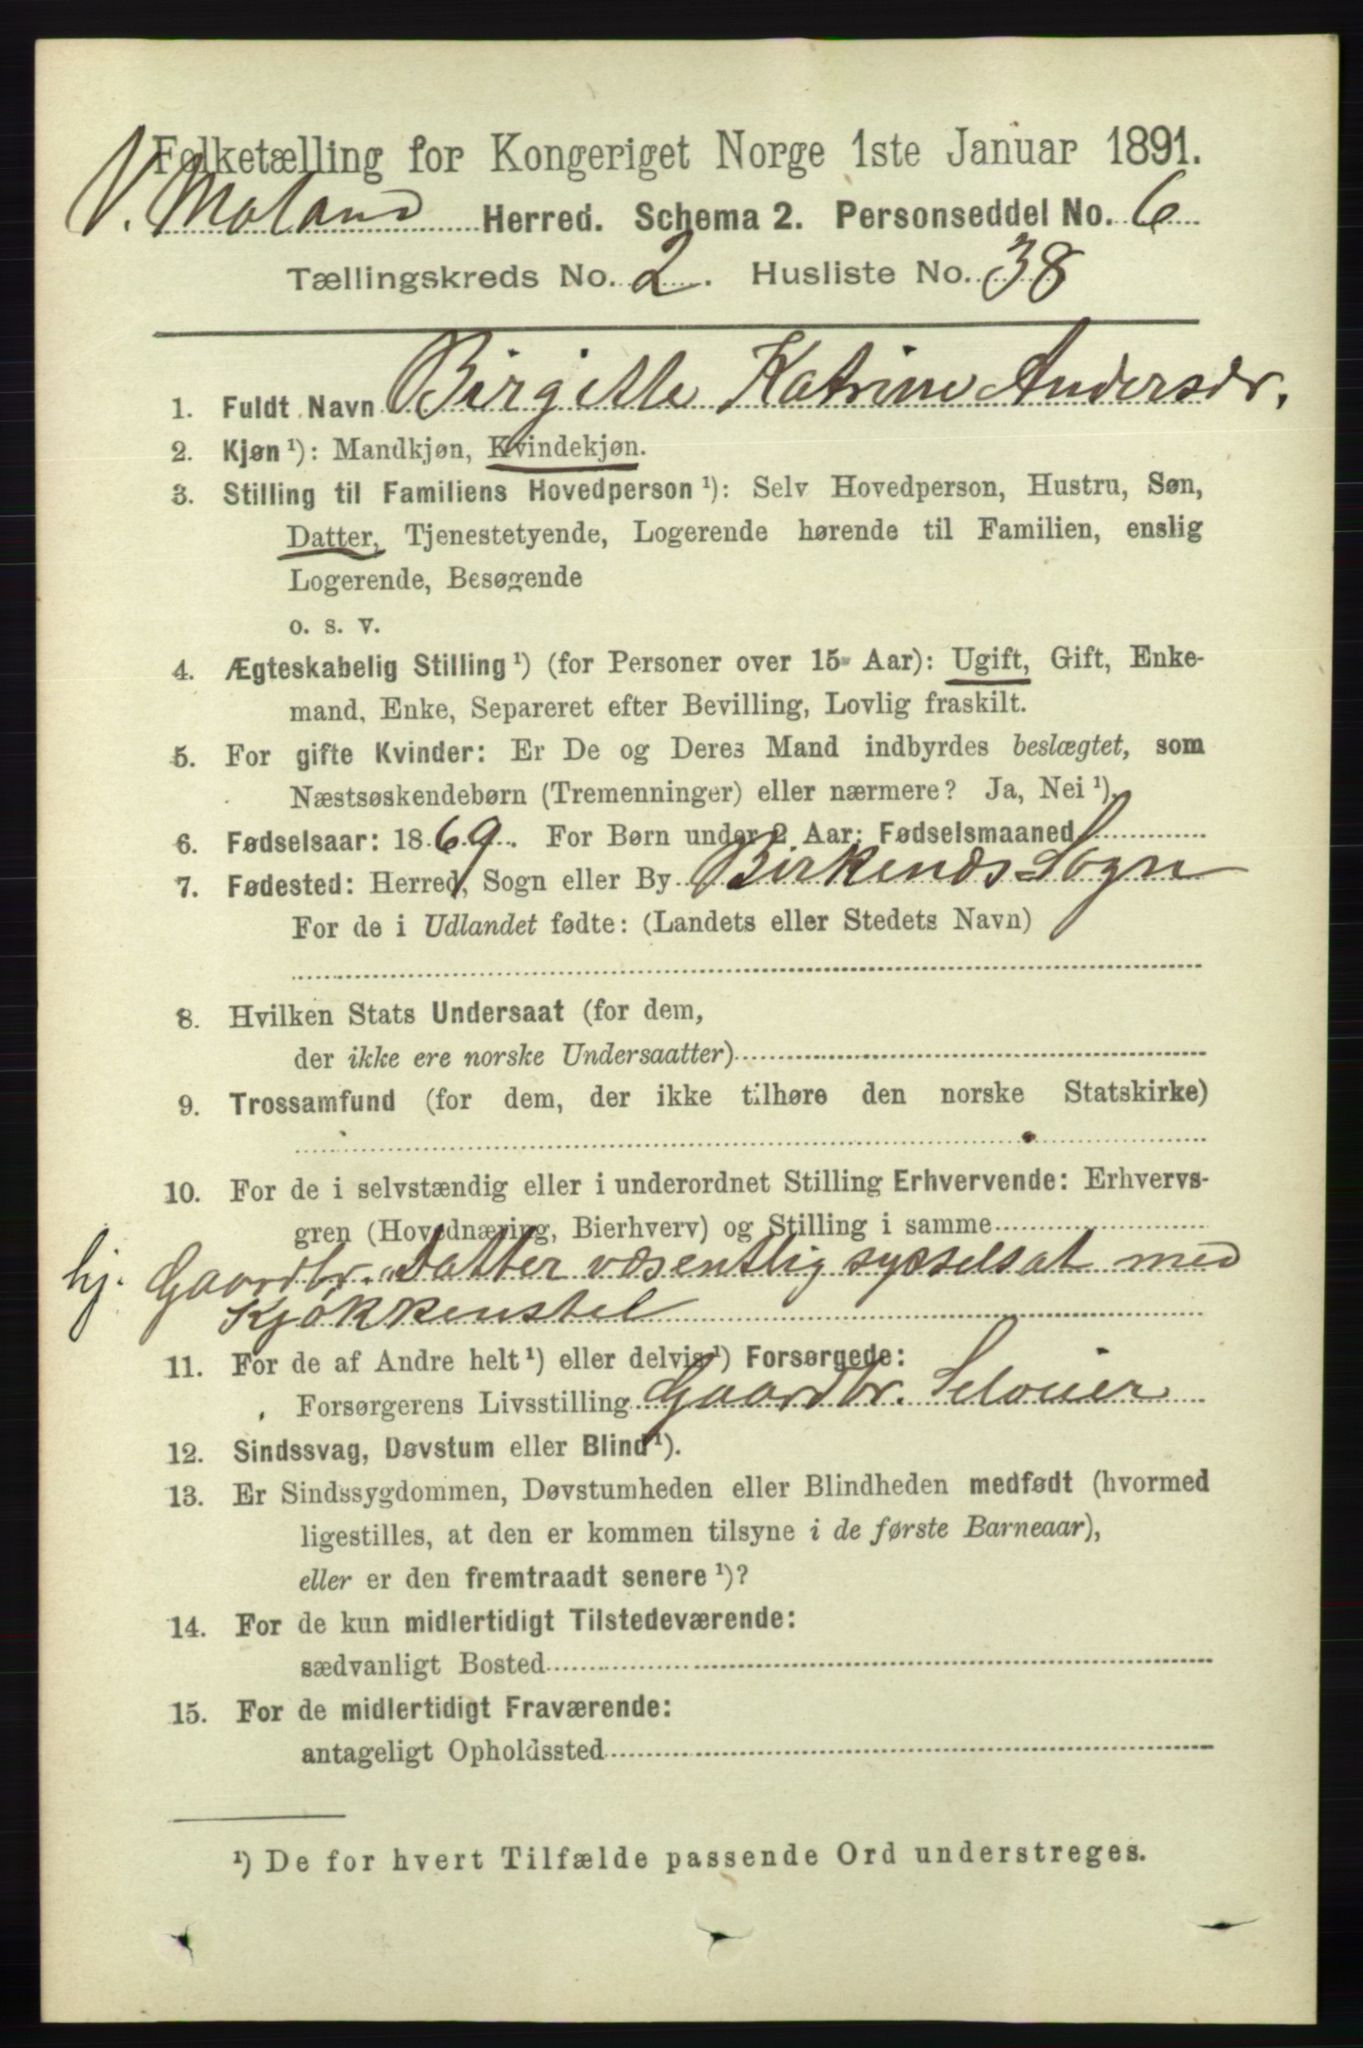 Folketælling for Kongeriget Norge 1ste Januar 1891.
V. Moland Herred. Schema 2. Personseddel No. 6
Tællingskreds No. 2. Husliste No. 38
1. Fuldt Navn Birgitte Katrine Andersdr.
2. Kjøn ¹): Mandkjøn, Kvindekjøn.
3. Stilling til Familiens Hovedperson ¹): Selv Hovedperson, Hustru, Søn,
Datter, Tjenestetyende, Logerende hørende til Familien, enslig
Logerende, Besøgende
o. s. v.
4. Ægteskabelig Stilling ¹) (for Personer over 15 Aar): Ugift, Gift, Enke-
mand, Enke, Separeret efter Bevilling, Lovlig fraskilt.
5. For gifte Kvinder: Er De og Deres Mand indbyrdes beslægtet, som
Næstsøskendebørn (Tremenninger) eller nærmere? Ja, Nei ¹).
6. Fødselsaar: 1869. For Børn under 2 Aar: Fødselsmaaned
7. Fødested: Herred, Sogn eller By Birkenæs Sogn
For de i Udlandet fødte: (Landets eller Stedets Navn)
8. Hvilken Stats Undersaat (for dem,
der ikke ere norske Undersaatter)
9. Trossamfund (for dem, der ikke tilhøre den norske Statskirke)
10. For de i selvstændig eller i underordnet Stilling Erhvervende: Erhvervs-
gren (Hovednæring, Bierhverv) og Stilling i samme
hj. Gaardbr. Datter væsentlig sysselsat med
Kjøkkenstel
11. For de af Andre helt ¹) eller delvis ¹) Forsørgede:
Forsørgerens Livsstilling Gaardbr. Seloeier
12. Sindssvag, Døvstum eller Blind ¹).
13. Er Sindssygdommen, Døvstumheden eller Blindheden medfødt (hvormed
ligestilles, at den er kommen tilsyne i de første Barneaar),
eller er den fremtraadt senere ¹)?
14. For de kun midlertidigt Tilstedeværende:
sædvanligt Bosted
15. For de midlertidigt Fraværende:
antageligt Opholdssted
¹) De for hvert Tilfælde passende Ord understreges.